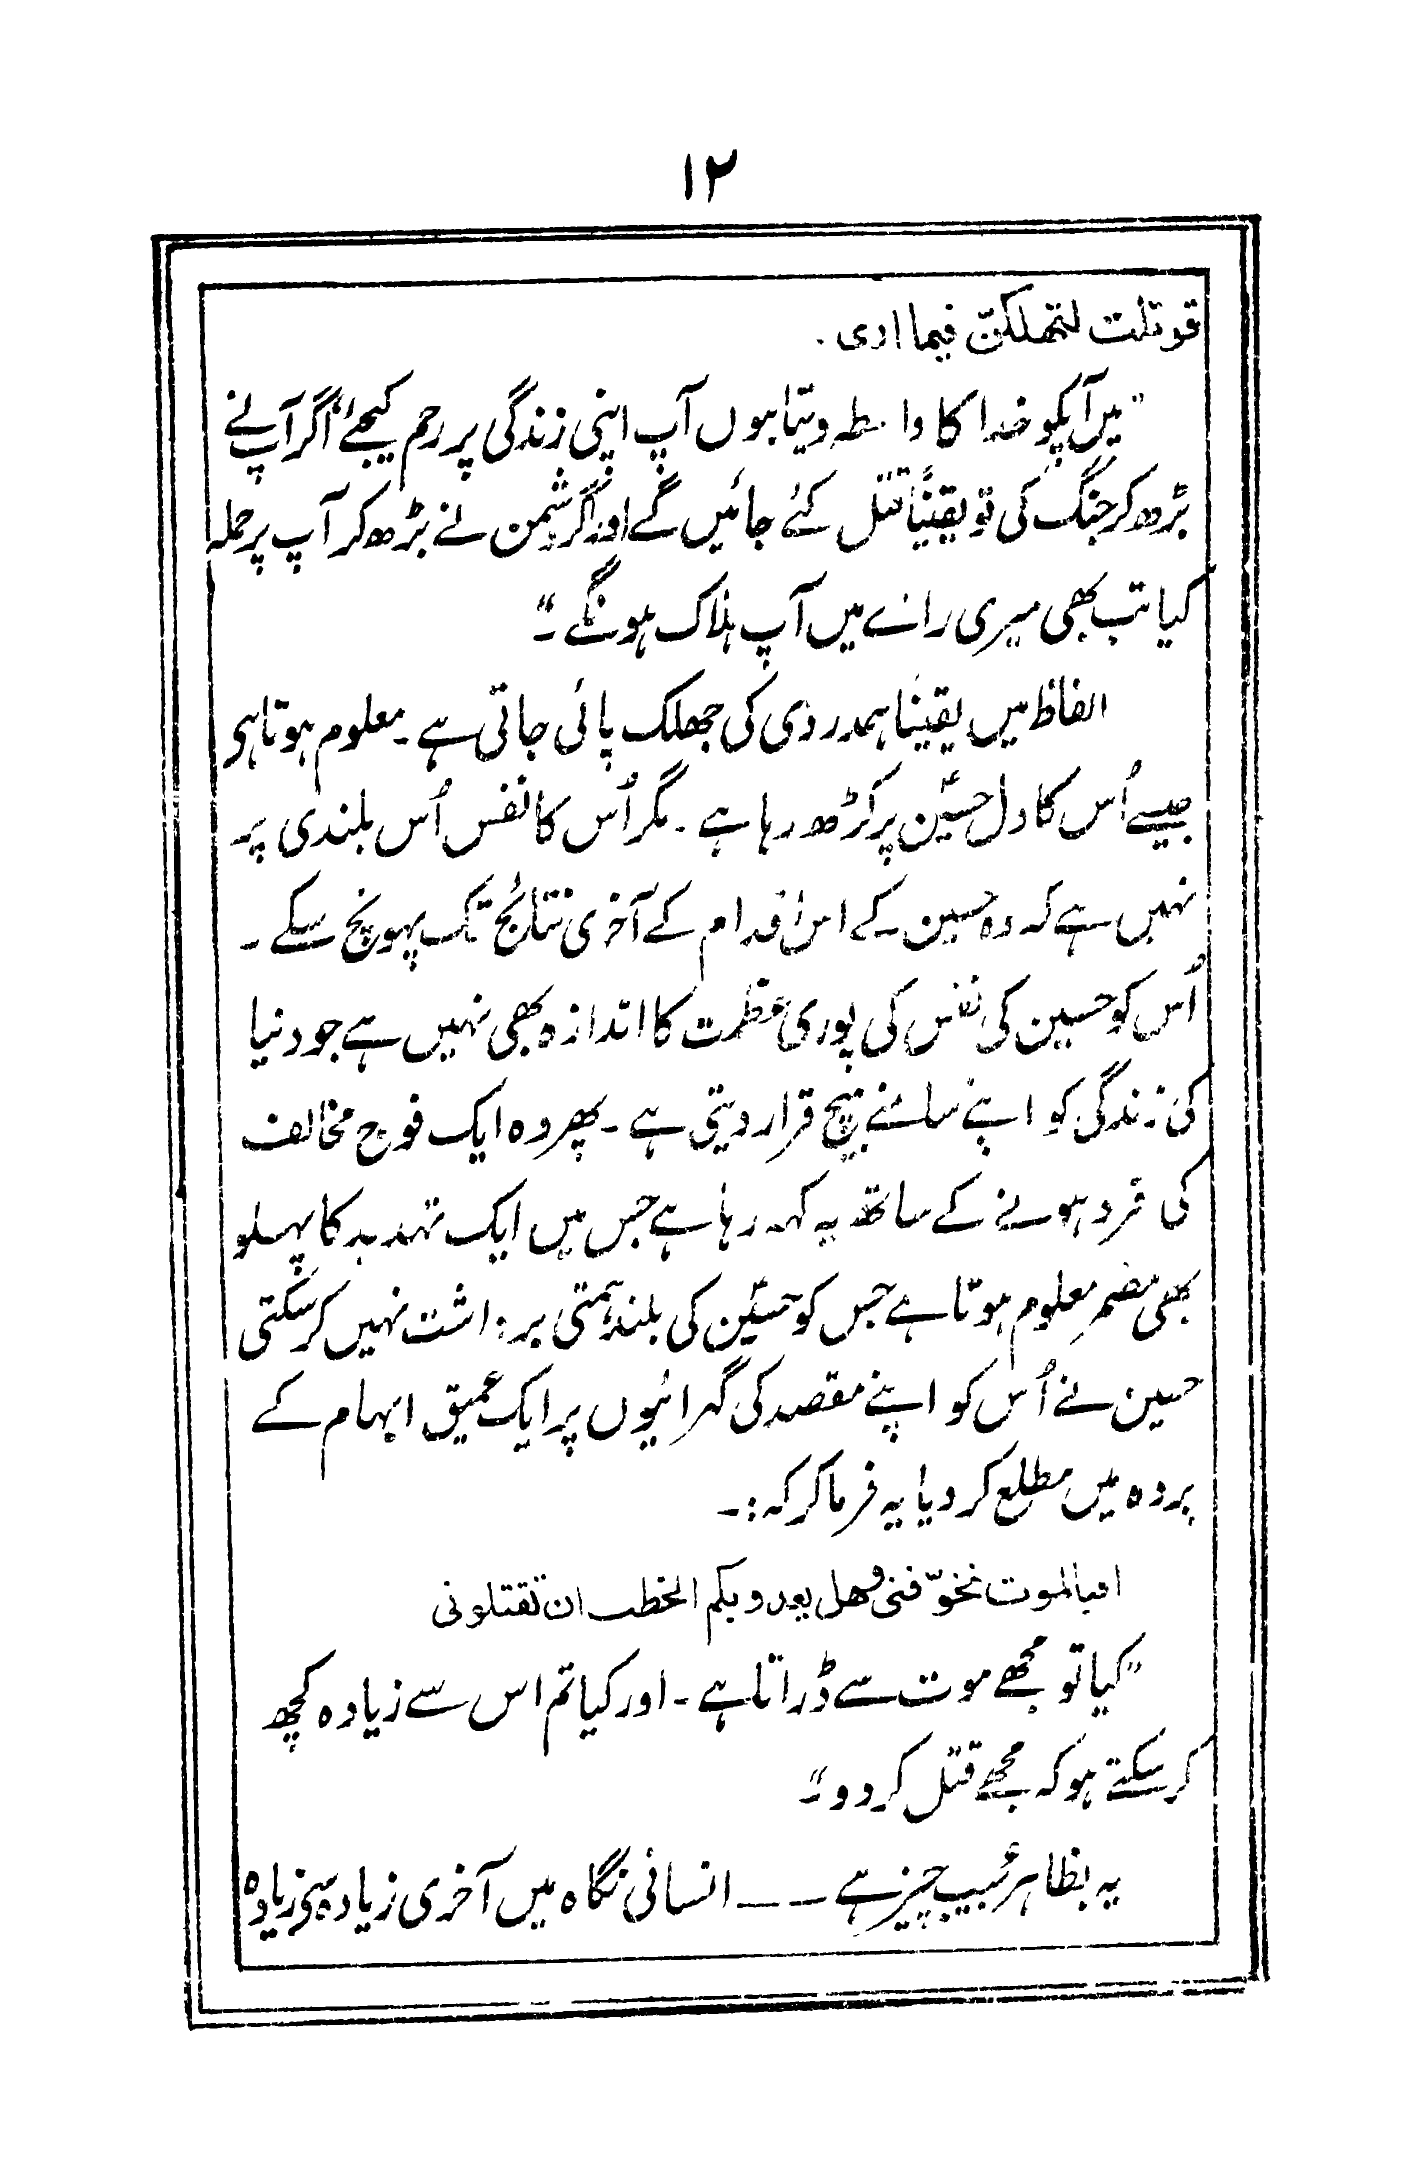 ۱۲
قوتلت لتھلکنّ فیما اری۔
”میں آپکو خدا کا واسطہ دیتا ہوں آپ اپنی زندگی پر رحم کیجئے اگر آپ نے
بڑھ کر جنگ کی تو یقیناً قتل کئے جائیں گے اور اگر دشمن نے بڑھ کر آپ پر حملہ
کیا تب بھی میری رائے میں آپ ہلاک ہونگے۔“
الفاظ میں یقیناً ہمدردی کی جھلک پائی جاتی ہے۔ معلوم ہوتا ہی
جیسے اُس کا دل حسینؑ پر کڑھ رہا ہے۔ مگر اُس کا نفس اُس بلندی پر
نہیں ہے کہ وہ حسین کے اس اقدام کے آخری نتائج تک پہونچ سکے۔
اُس کو حسین کی نفس کی پوری عظمت کا اندازہ بھی نہیں ہے جو دنیا
کی زندگی کو اپنے سامنے ہیچ قرار دیتی ہے۔ پھر وہ ایک فوج مخالف
کی فرد ہونے کے ساتھ یہ کہہ رہا ہے جس میں ایک تہدید کا پہلو
بھی مضمر معلوم ہوتا ہے جس کو حسینؑ کی بلند ہمتی برداشت نہیں کر سکتی
حسین نے اُس کو اپنے مقصد کی گہرائیوں پر ایک عمیق ابہام کے
پردہ میں مطلع کر دیا یہ فرما کر کہ:۔
افبالموت تخوّفنی وھل یعدو بکم الخطب ان تقتلونی
”کیا تو مجھے موت سے ڈراتا ہے۔ اور کیا تم اس سے زیادہ کچھ
کر سکتے ہو کہ مجھے قتل کر دو۔“
یہ بظاہر عجیب چیز ہے ــــ انسانی نگاہ میں آخری زیادہ سی زیادہ